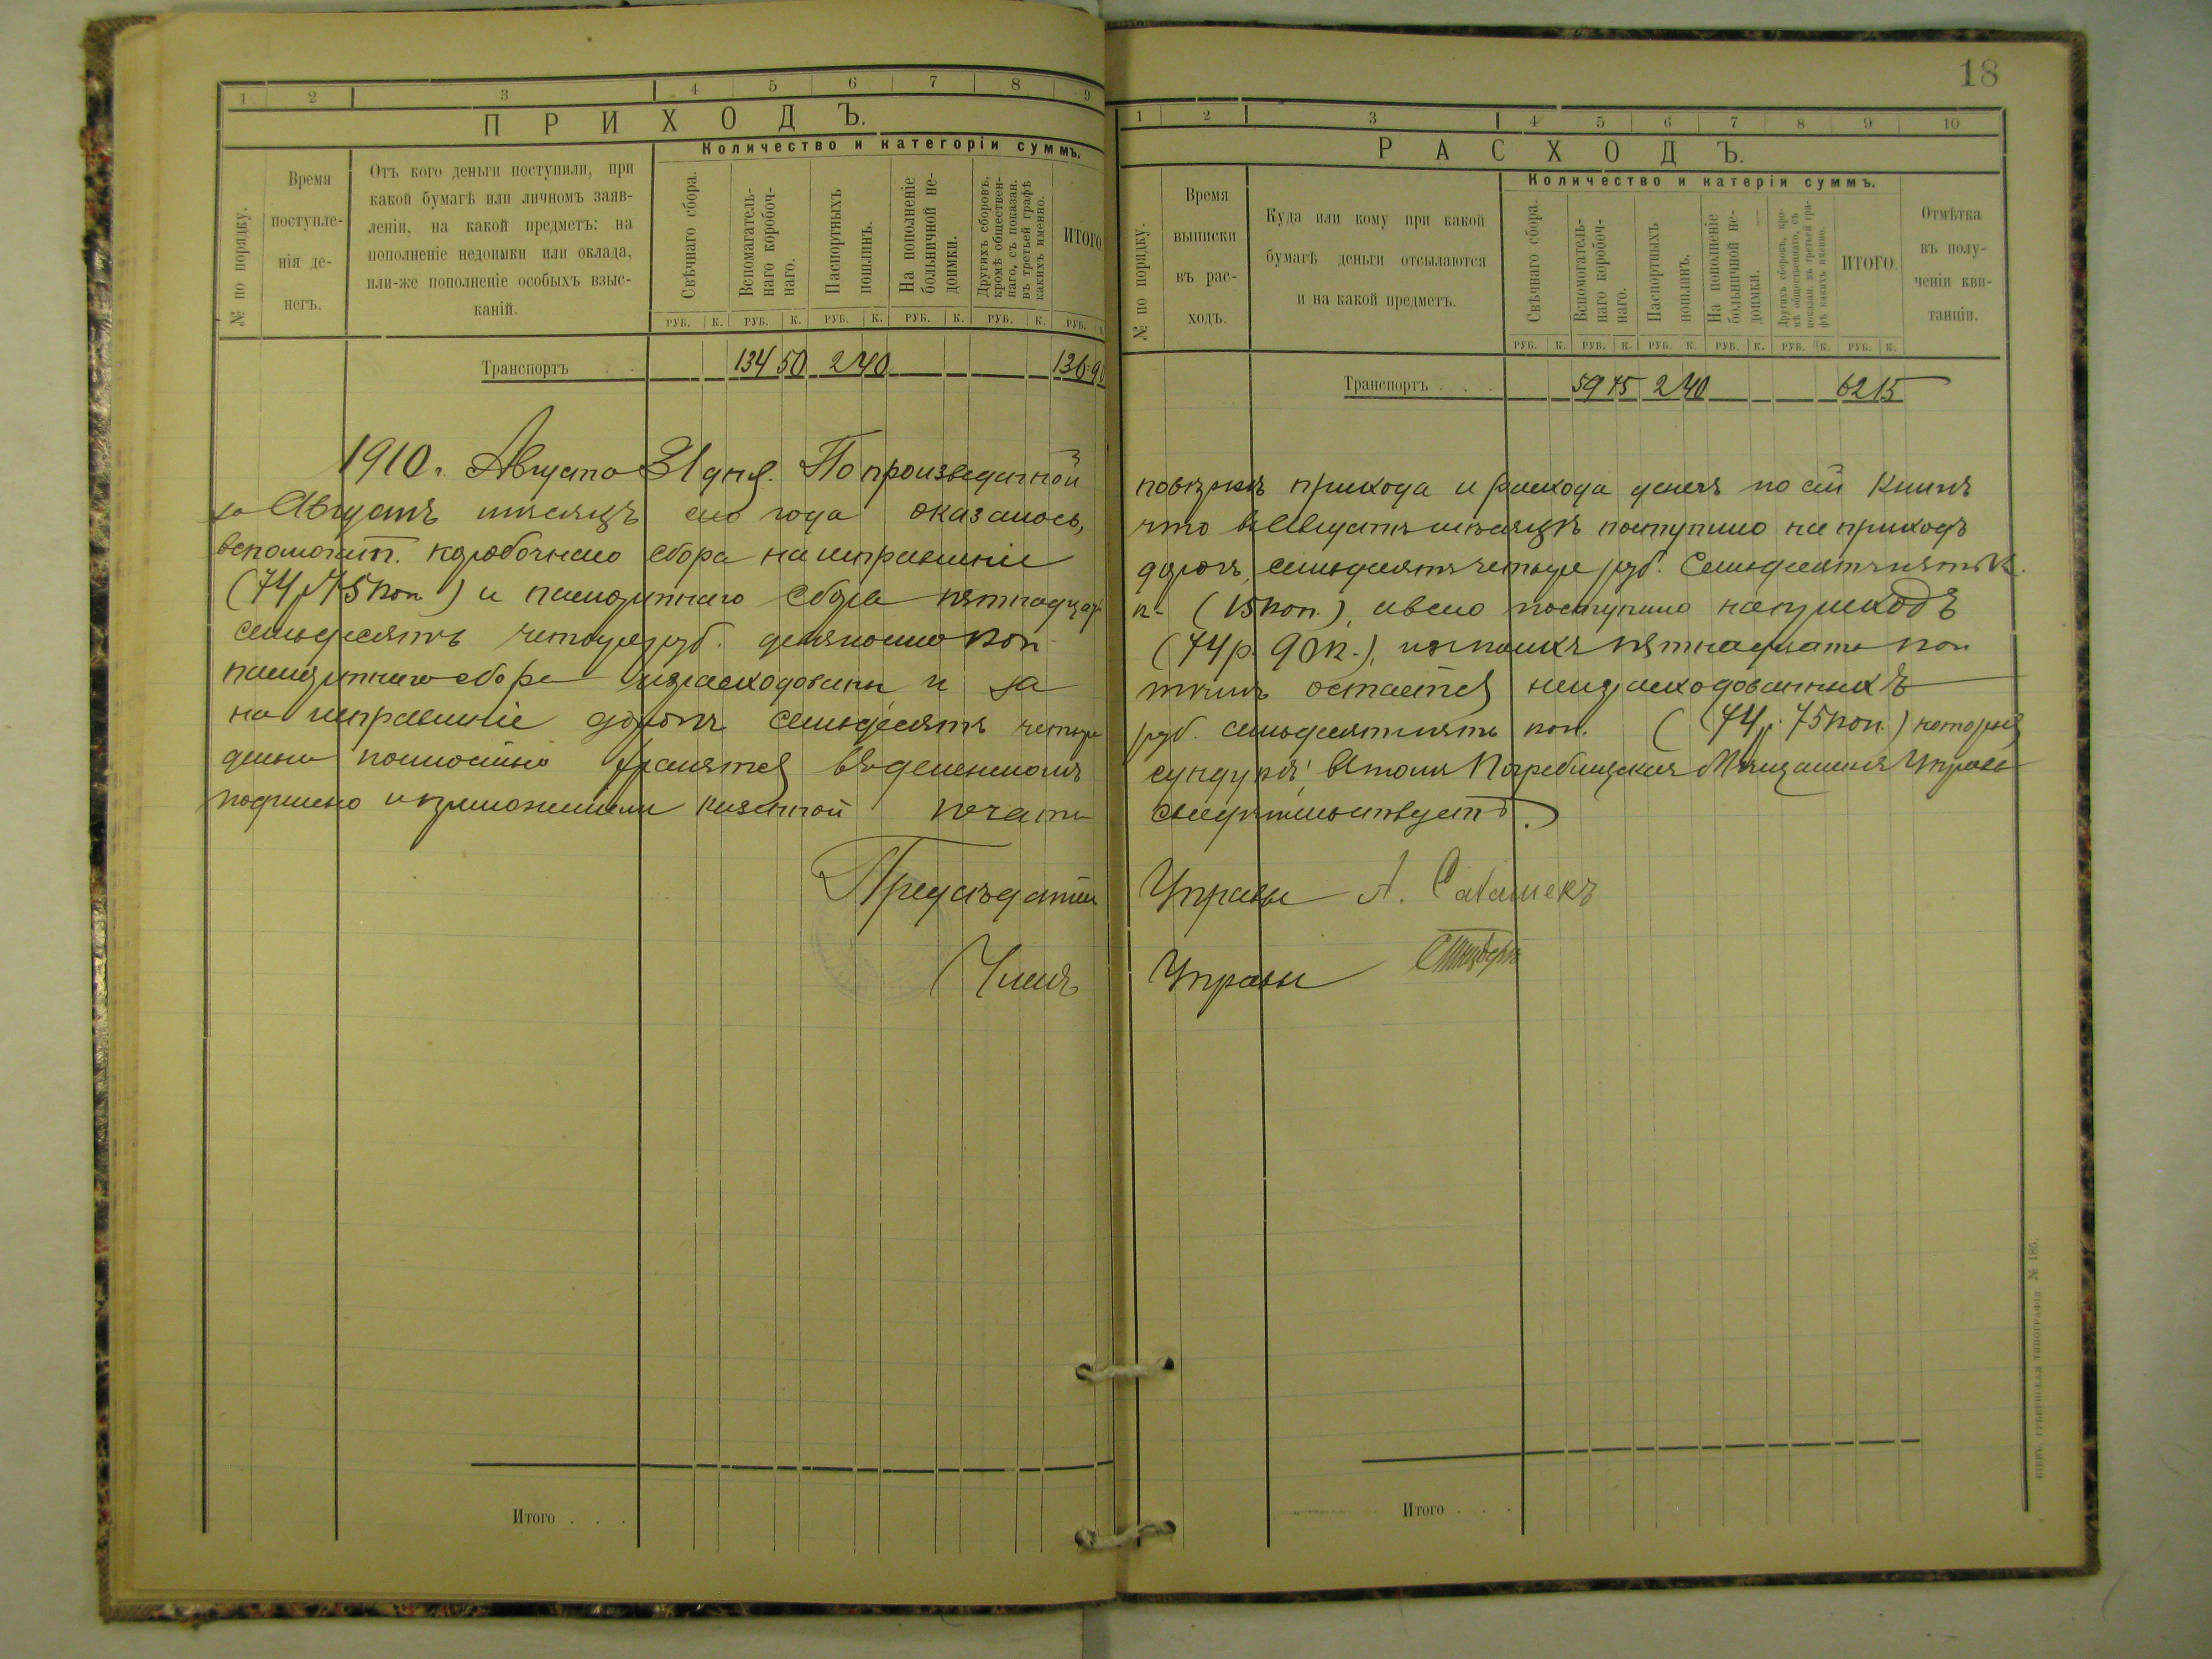 1 2 3 4 5 6 7 8 9
ПРИХОДЪ.
№ по порядку.
Время
поступле-
нія де-
негъ.
Отъ кого деньги поступили, при
какой бумагѣ или личномъ заяв-
леніи, на какой предметъ: на
пополненіе недоимки или оклада,
или-же пополненіе особыхъ взыс-
каній.
Количество и категоріи суммъ.
Свѣчнаго сбора.
Вспомагатель-
наго коробоч-
наго.
Паспортныхъ
пошлинъ.
На пополненіе
больничной не-
доимки.
Другихъ сборовъ,
кромѣ обществен-
наго, съ показан.
въ третьей графѣ
какихъ именно.
ИТОГО
РУБ. К. РУБ. К. РУБ. К. РУБ. К. РУБ. К. РУБ.
Транспортъ . . 134 50 2 40 136 90
1910 г. Августа 31 дня. По произведенной
за Августъ мѣсяцъ сего года оказалось,
вспомогат. коробочнаго сбора на исправленіе
(74 р 75 коп) и паспортнаго сбора пятнадцать
семьдесятъ четыре руб. девяносто коп
паспортнаго сбора израсходованы и за
на исправленіе дорогъ семьдесятъ четыре
деньги полностью хранятся въ денежномъ
подписью и приложеніемъ казенной печати
Предсѣдатель
Членъ
Итого . . .
18
1 2 3 4 5 6 7 8 9 10
РАСХОДЪ.
№ по порядку.
Время
выписки
въ рас-
ходъ.
Куда или кому при какой
бумагѣ деньги отсылаются
и на какой предметъ.
Количество и катеріи суммъ.
Свѣчнаго сбора.
Вспомогатель-
наго коробоч-
наго.
Паспортныхъ
пошлинъ.
На пополненіе
больничной не-
доимки.
Другихъ сборовъ, кро-
мѣ общественнаго, съ
показан. въ третьей гра-
фѣ какихъ именно.
ИТОГО.
Отмѣтка
въ полу-
ченіи кви-
танціи.
РУБ. К. РУБ. К. РУБ. К. РУБ. К. РУБ. К. РУБ. К.
Транспортъ . . . 59 75 2 40 62 15
повѣркѣ прихода и расхода денегъ по сей книгѣ
что въ Августѣ мѣсяцѣ поступило на приходъ
дорогъ, семьдесятъ четыре руб. семьдесятъ пять к.
к. (15 коп.), а всего поступило на приходъ
(74 р. 90 к.), изъ нихъ пятнадцать коп
тѣмъ остается неизрасходованныхъ
руб. семьдесятъ пять коп. (74 р. 75 коп.) которыя
сундукѣ, въ томъ Погребищская Мѣщанская Управа
свидѣтельствуетъ.
Управы А.
Управы
Итого . . .
КІЕВЪ. ГУБЕРНСКАЯ ТИПОГРАФІЯ № 185.